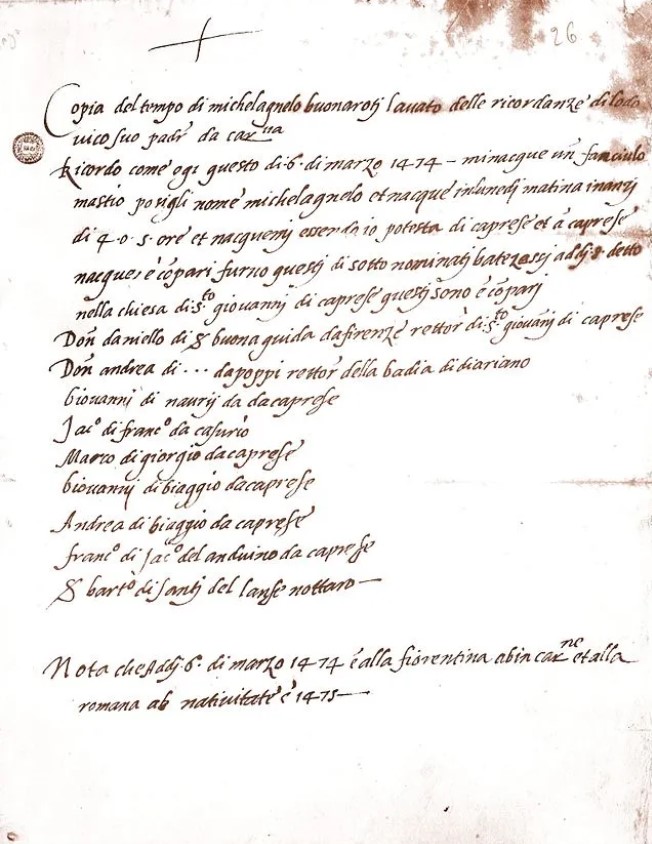 26
Copia del tempo di michelagnelo buonarotj lavato delle ricordanze di lodo
vico suo padre da car.na
Ricordo come ogi questo di 6 · di marzo 1474 – minacque un fanciulo
mastio posigli nome michelagnelo et nacque in lunedj matina inanzj
di 4 · o · 5 · ore et nacquemj essendo io potesta di caprese et a caprese
nacque e co̅parj furno questj di sotto nominatj batezossj addj 8 · detto
nella chiesa di s.to giovannj di caprese questj sono e co̅parj
Don daniello di S buonaguida da firenze rettor di s.to giovannj di caprese
Don andrea di · · · da poppi rettor della badia di diariano
Giovannj di naurij da caprese
Jac.o di franc.o da casurio
Marco di giorgio da caprese
Giovannj di biaggio da caprese
Andrea di biaggio da caprese
franc.o di Jac.o del anduino da caprese
S bart.o di santj del lanse nottaro —
Nota che Addj 6 · di marzo 1474 è alla fiorentina ab incar.ne et alla
romana ab nativitate è 1475 —